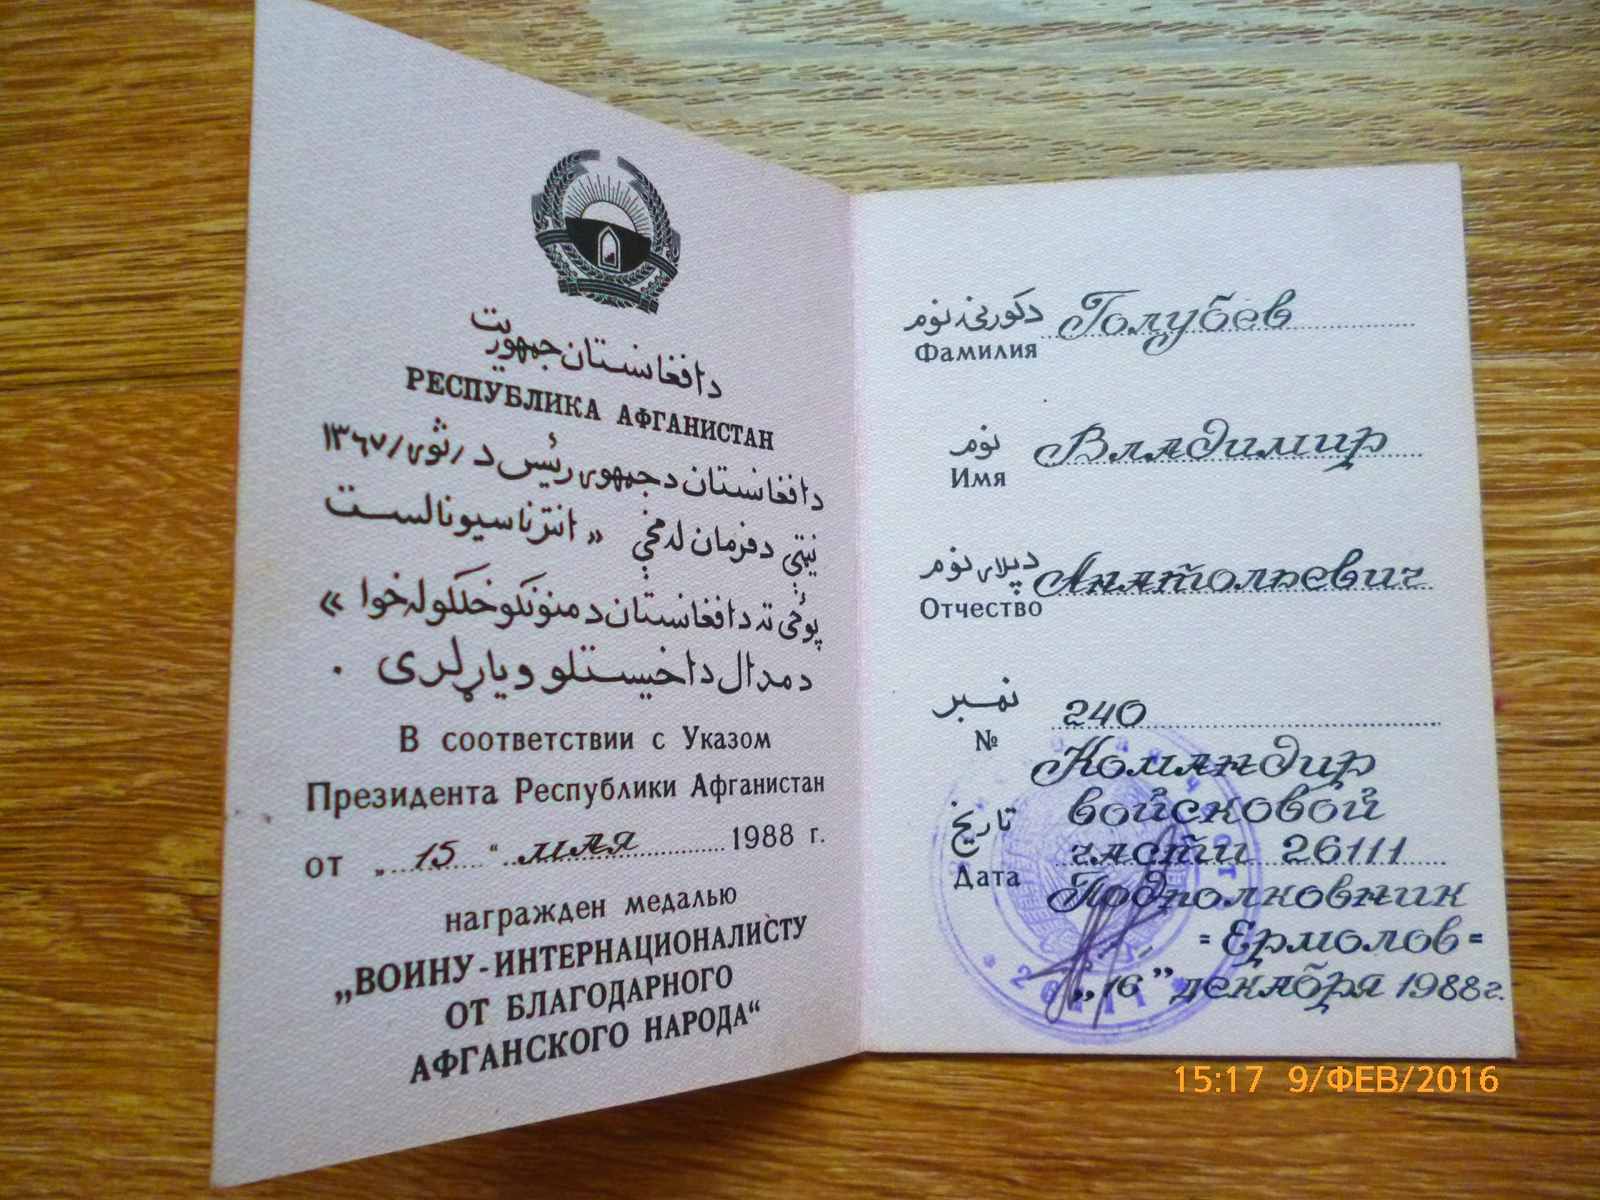 دافغانستان جمهوریت
РЕСПУБЛИКА АФГАНИСТАН
دافغانستان دجمهوری رئیس د / ثوری / ۱۳۶۷
نیټې دفرمان له مخې « انترناسیونالست
پوځی ته دافغانستان دمنونکو خلکو له خوا »
دمدال داخیستلو ویاړ لری .
В соответствии с Указом
Президента Республики Афганистан
от „ 15 “ мая 1988 г.
награжден медалью
„ВОИНУ-ИНТЕРНАЦИОНАЛИСТУ
ОТ БЛАГОДАРНОГО
АФГАНСКОГО НАРОДА“
دکورنۍ نوم Голубев
Фамилия
نوم Владимир
Имя
دپلار نوم Анатольевич
Отчество
نمبر 240
№
Командир
تاریخ войсковой
части 26111
Дата Подполковник
=Ермолов=
„16” декабря 1988г.
15:17 9/ФЕВ/2016